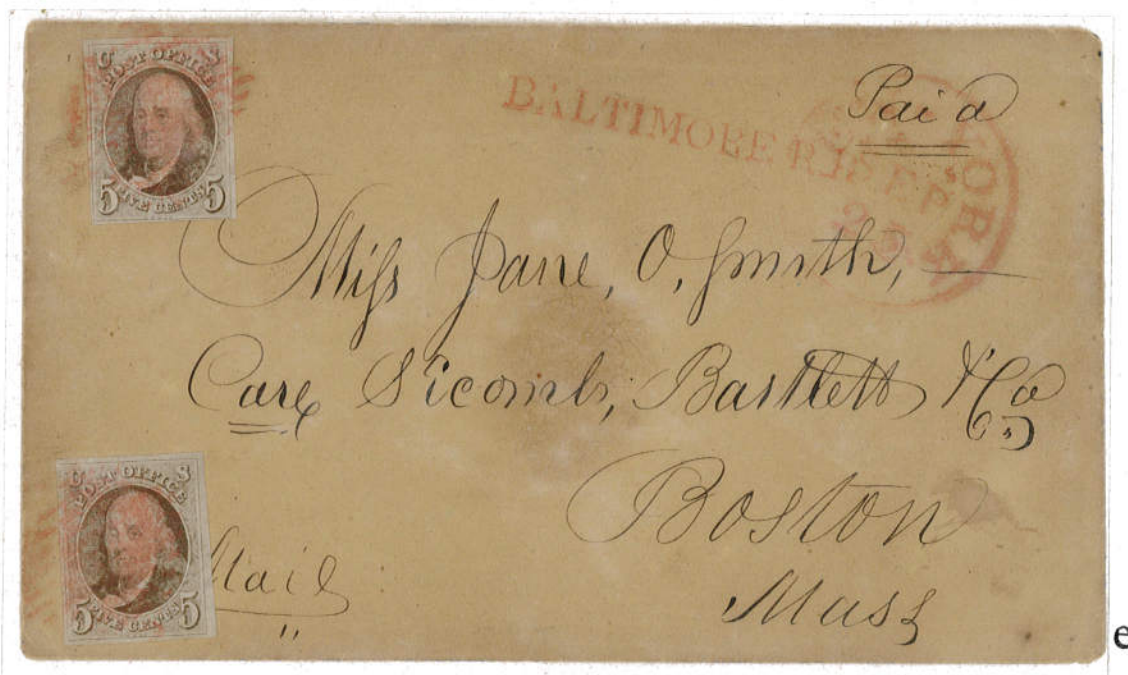 U S
POST OFFICE
5 FIVE CENTS 5
Paid
BALTIMORE R.R.
YORK
Miſs Jane, O. Smith,
Care Sicomb, Bartlett & Co
Boston
Mass
U S
POST OFFICE
5 FIVE CENTS 5
Mail
e